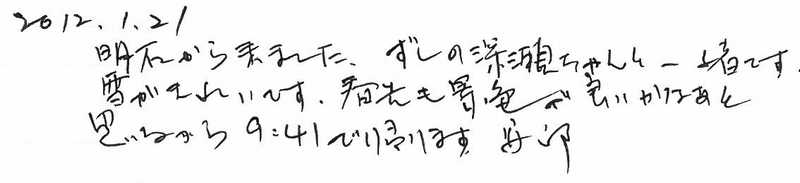 2012.1.21
明石から来ました、ずしの深瀬ちゃんと一緒です。
雪がきれいです。春先も景色が良いかなあと
思いながら 9:41で帰ります